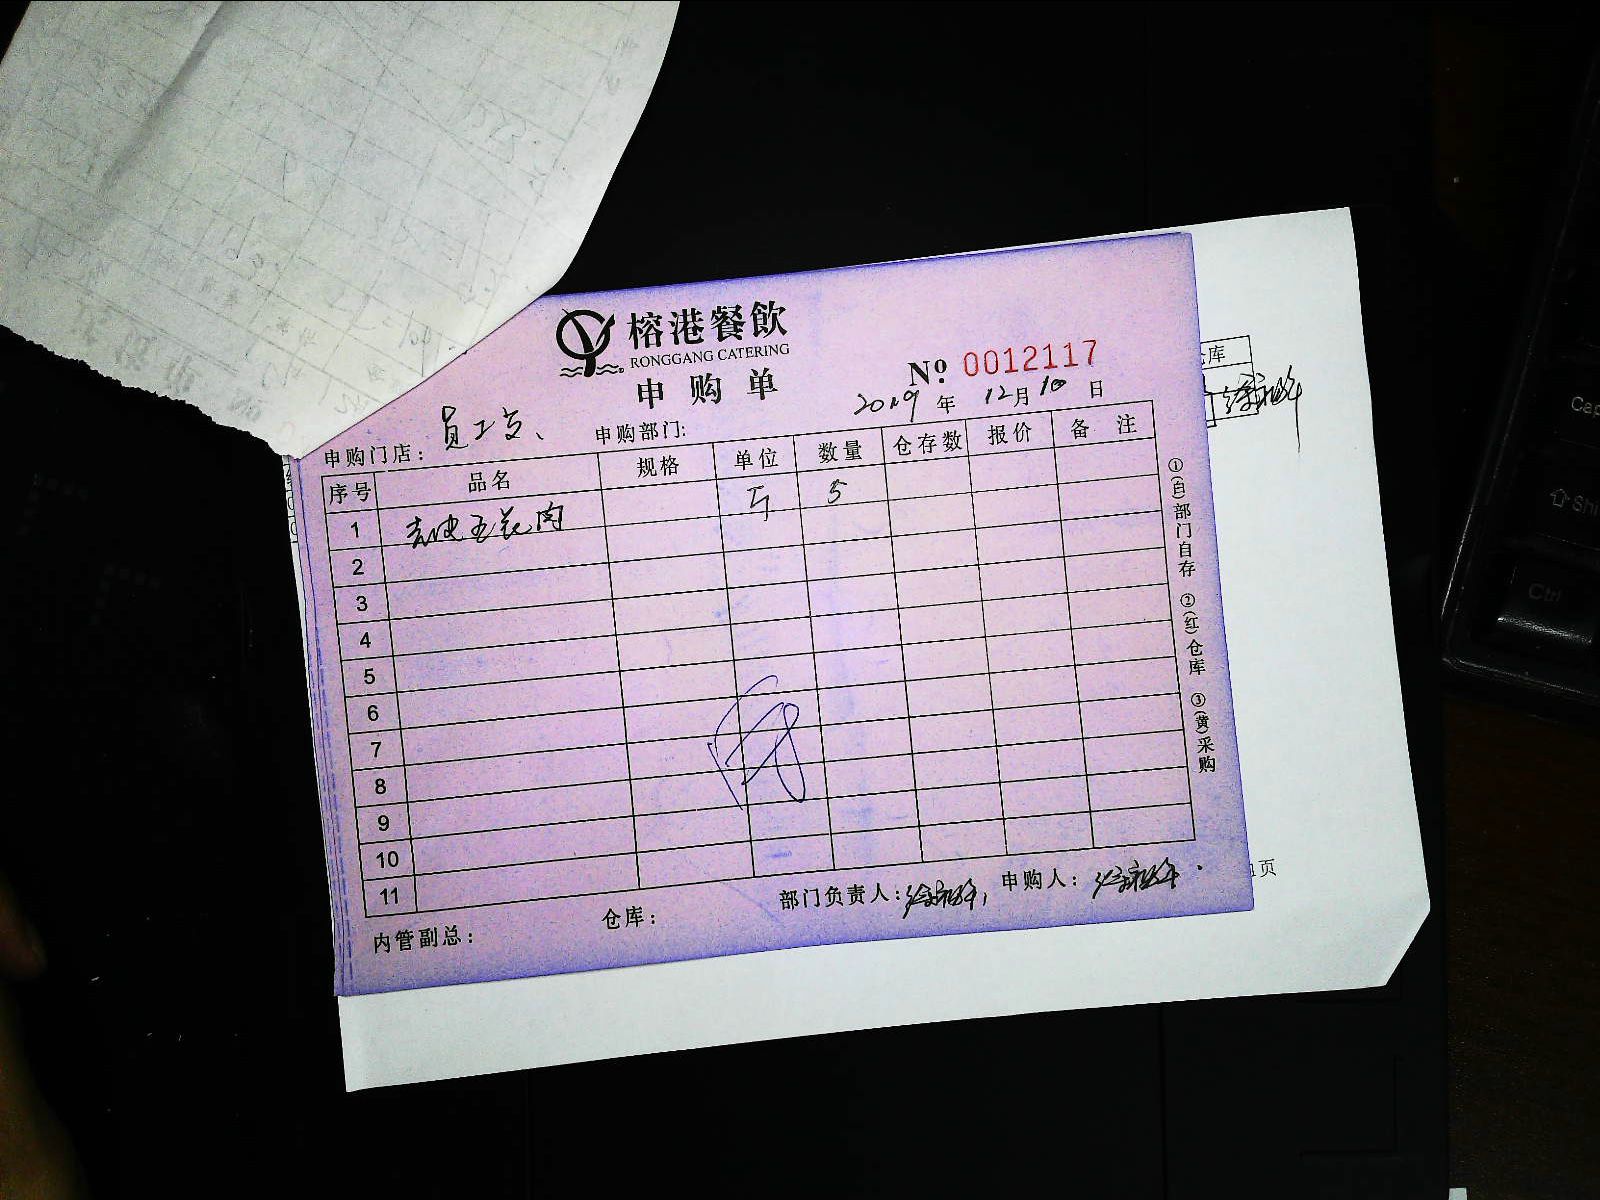 榕港餐飲
RONGGANG CATERING
申购单
№ 0012117
2019年12月10日
申购门店：员工 申购部门:
序号 品名 规格 单位 数量 仓存数 报价 备注
1 去皮五花肉 斤 5
2
3
4
5
6
7
8
9
10
11
内管副总： 仓库： 部门负责人： 申购人：
①(白)部门自存 ②(红)仓库 ③(黄)采购
库
页
Ctrl